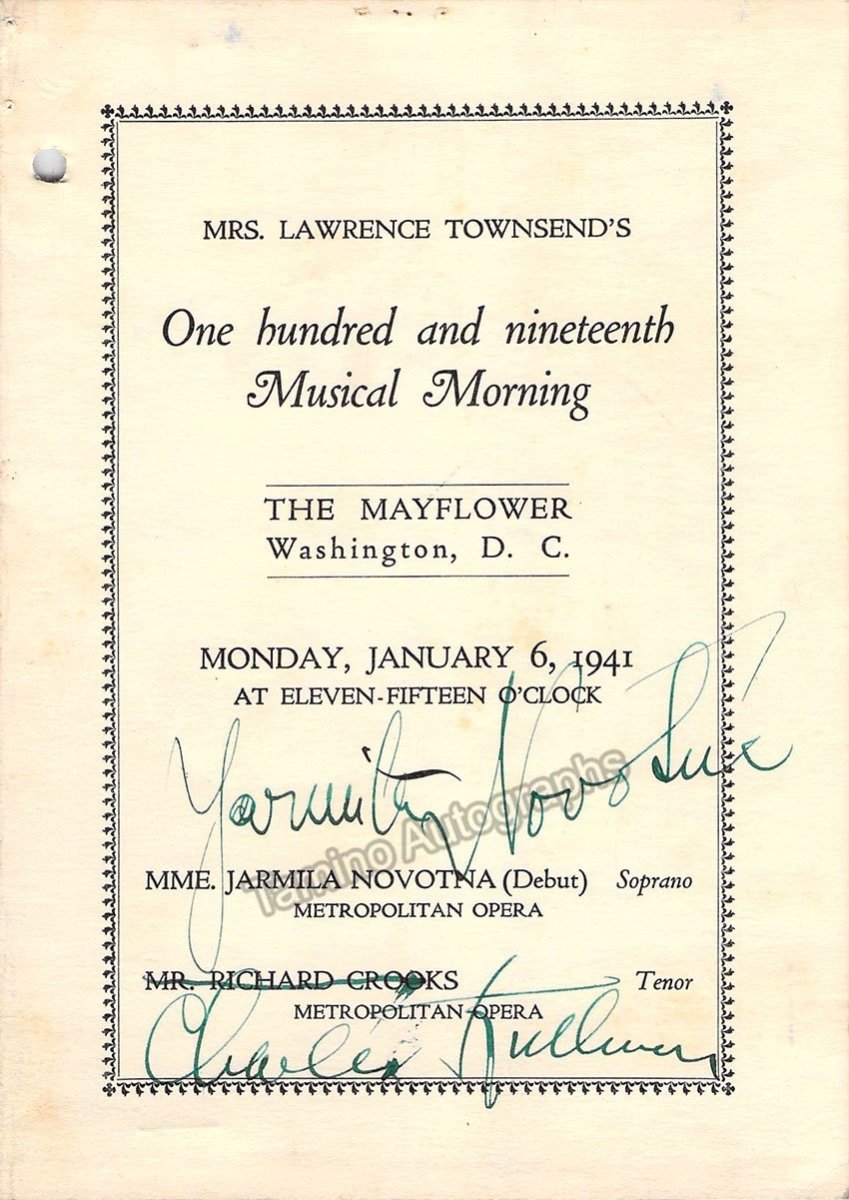 MRS. LAWRENCE TOWNSEND'S
One hundred and nineteenth
Musical Morning
THE MAYFLOWER
Washington, D. C.
MONDAY, JANUARY 6, 1941
AT ELEVEN-FIFTEEN O'CLOCK
Jarmila Novotna
Tamino Autographs
MME. JARMILA NOVOTNA (Debut) Soprano
METROPOLITAN OPERA
MR. RICHARD CROOKS Tenor
METROPOLITAN OPERA
Charles Kullman